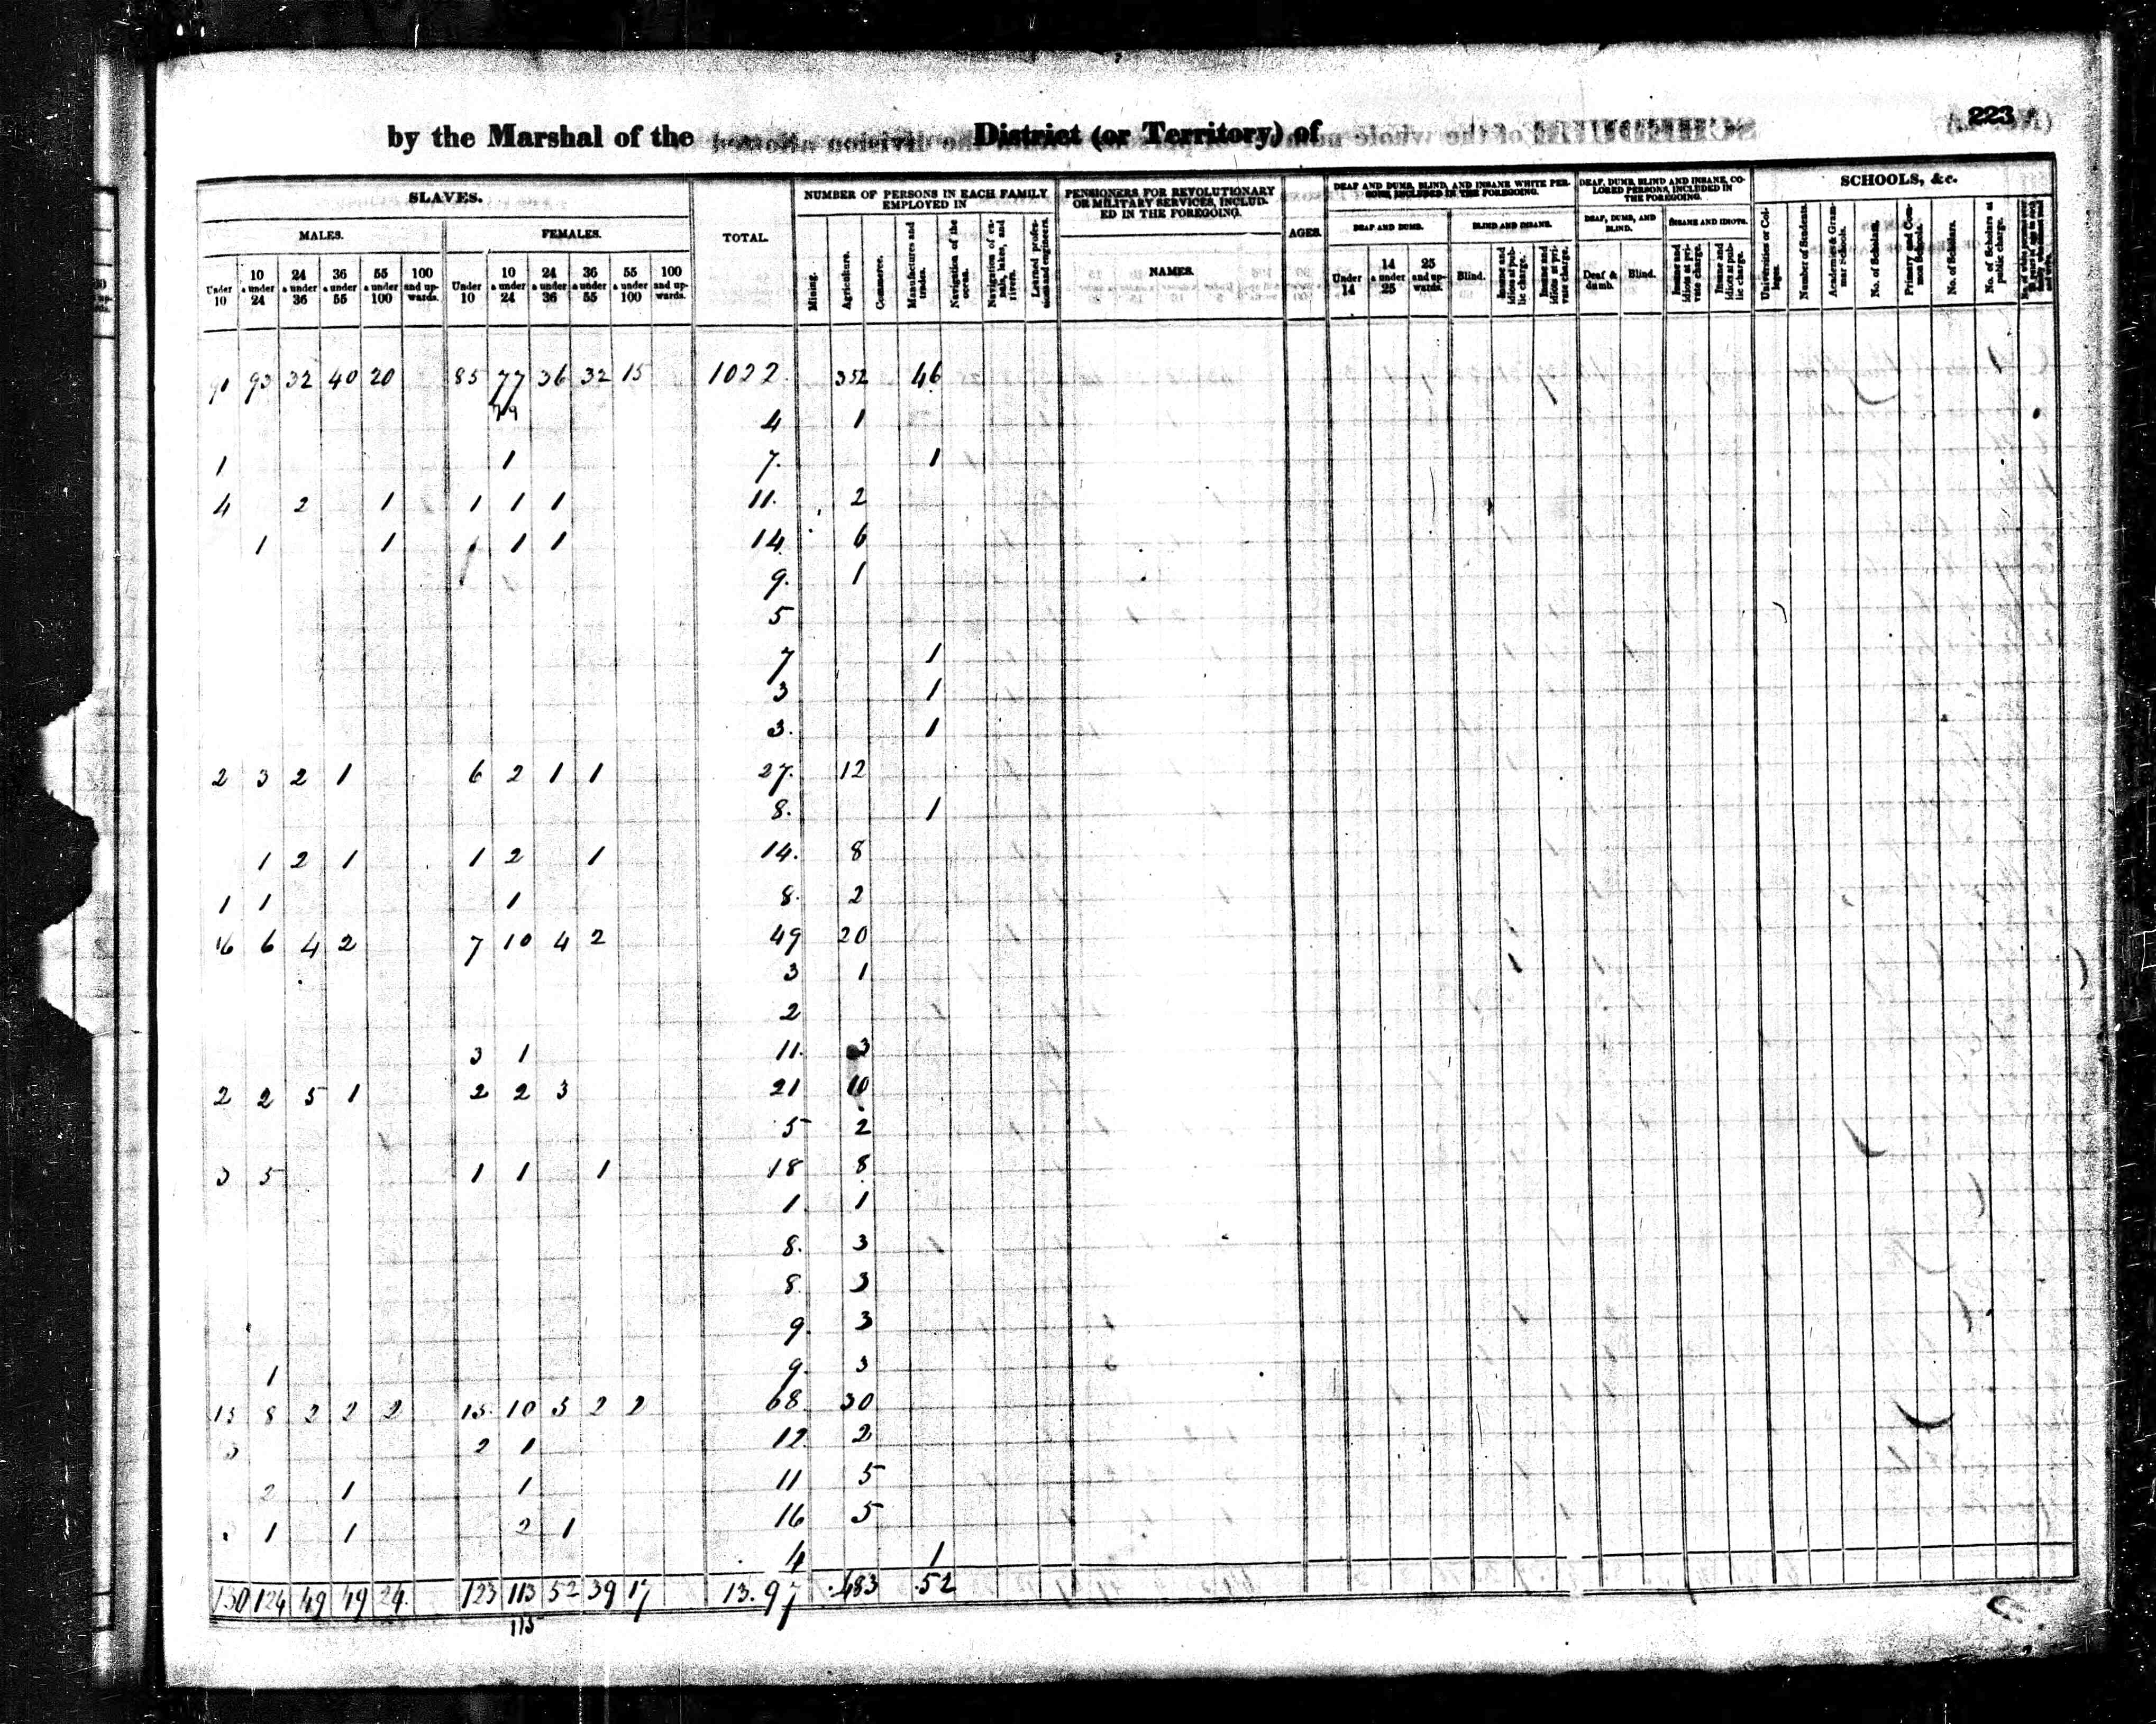 223
by the Marshal of the District (or Territory) of
SLAVES.
TOTAL.
NUMBER OF PERSONS IN EACH FAMILY EMPLOYED IN
PENSIONERS FOR REVOLUTIONARY OR MILITARY SERVICES, INCLUDED IN THE FOREGOING.
DEAF AND DUMB, BLIND, AND INSANE WHITE PERSONS, INCLUDED IN THE FOREGOING.
DEAF, DUMB, BLIND AND INSANE, COLORED PERSONS, INCLUDED IN THE FOREGOING.
SCHOOLS, &c.
MALES.
FEMALES.
Under 10
10 & under 24
24 & under 36
36 & under 55
55 & under 100
100 and upwards.
Under 10
10 & under 24
24 & under 36
36 & under 55
55 & under 100
100 and upwards.
Mining.
Agriculture.
Commerce.
Manufactures and trades.
Navigation of the ocean.
Navigation of canals, lakes, and rivers.
Learned professions and engineers.
NAMES.
AGES.
DEAF AND DUMB.
BLIND AND INSANE.
DEAF, DUMB, AND BLIND.
INSANE AND IDIOTS.
Under 14
14 & under 25
25 and upwards.
Blind.
Insane and idiots at public charge.
Insane and idiots at private charge.
Deaf & dumb.
Blind.
Insane and idiots at private charge.
Insane and idiots at public charge.
Universities or Colleges.
Number of Students.
Academies & Grammar Schools.
No. of Scholars.
Primary and Common Schools.
No. of Scholars.
No. of Scholars at public charge.
93 32 40 20 85 77 36 32 15 1022 352 46
4 1
1 1 7. 1
4 2 1 1 1 1 11. 2
1 1 1 1 14. 6
9. 1
5
7 1
3 1
3. 1
2 3 2 1 6 2 1 1 27. 12
8. 1
1 2 1 1 2 1 14. 8
1 1 1 8. 2
6 4 2 7 10 4 2 49 20
3 1
2
3 1 11. 3
2 2 5 1 2 2 3 21 10
5 2
3 5 1 1 1 18 8
1. 1
8. 3
8. 3
9. 3
1 9. 3
8 2 2 2 10 2 2 68 30
2 1 12 2
2 1 1 11 5
1 1 2 1 16 5
4 1
130 124 49 49 24. 123 113 52 39 17 13.97 .483 .52
115